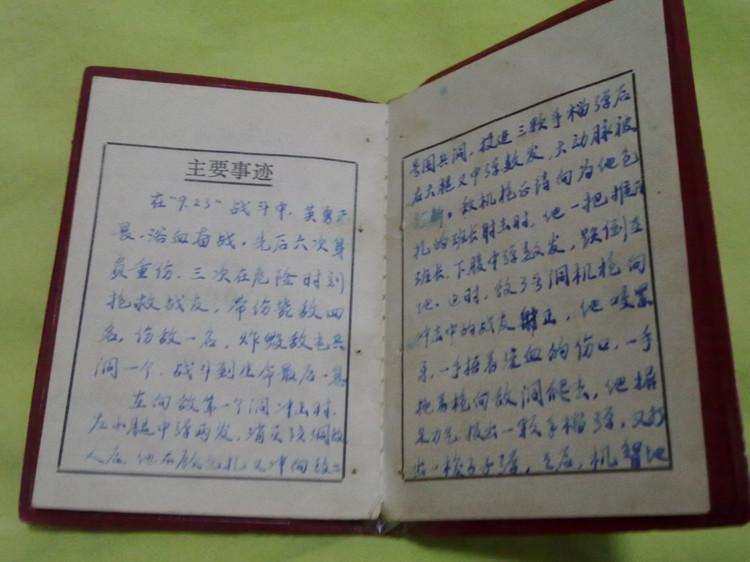 主要事迹
在"9.23"战斗中，英勇无
畏，浴血奋战，先后六次身
负重伤，三次在危险时刻
抢救战友，带伤毙敌四
名，伤敌一名，炸毁敌屯兵
洞一个，战斗到生命最后一息
在向敌第一个洞冲击时，
左小腿中弹两发，消灭该洞敌
人后，他不顾包扎，又冲向敌二
号屯兵洞，投进三颗手榴弹后
右大腿又中弹数发，大动脉被
打断。敌机枪正请向为他包
扎的班长射击时，他一把推开
班长，下腹中弹数发，跌倒在
地。这时，敌3号洞机枪向
冲击中的战友射击，他咬紧
牙，一手捂着流血的伤口，一手
拖着枪向敌洞爬去，他握
足力气，投出一颗手榴弹，又打
出一梭子子弹，之后，机智地